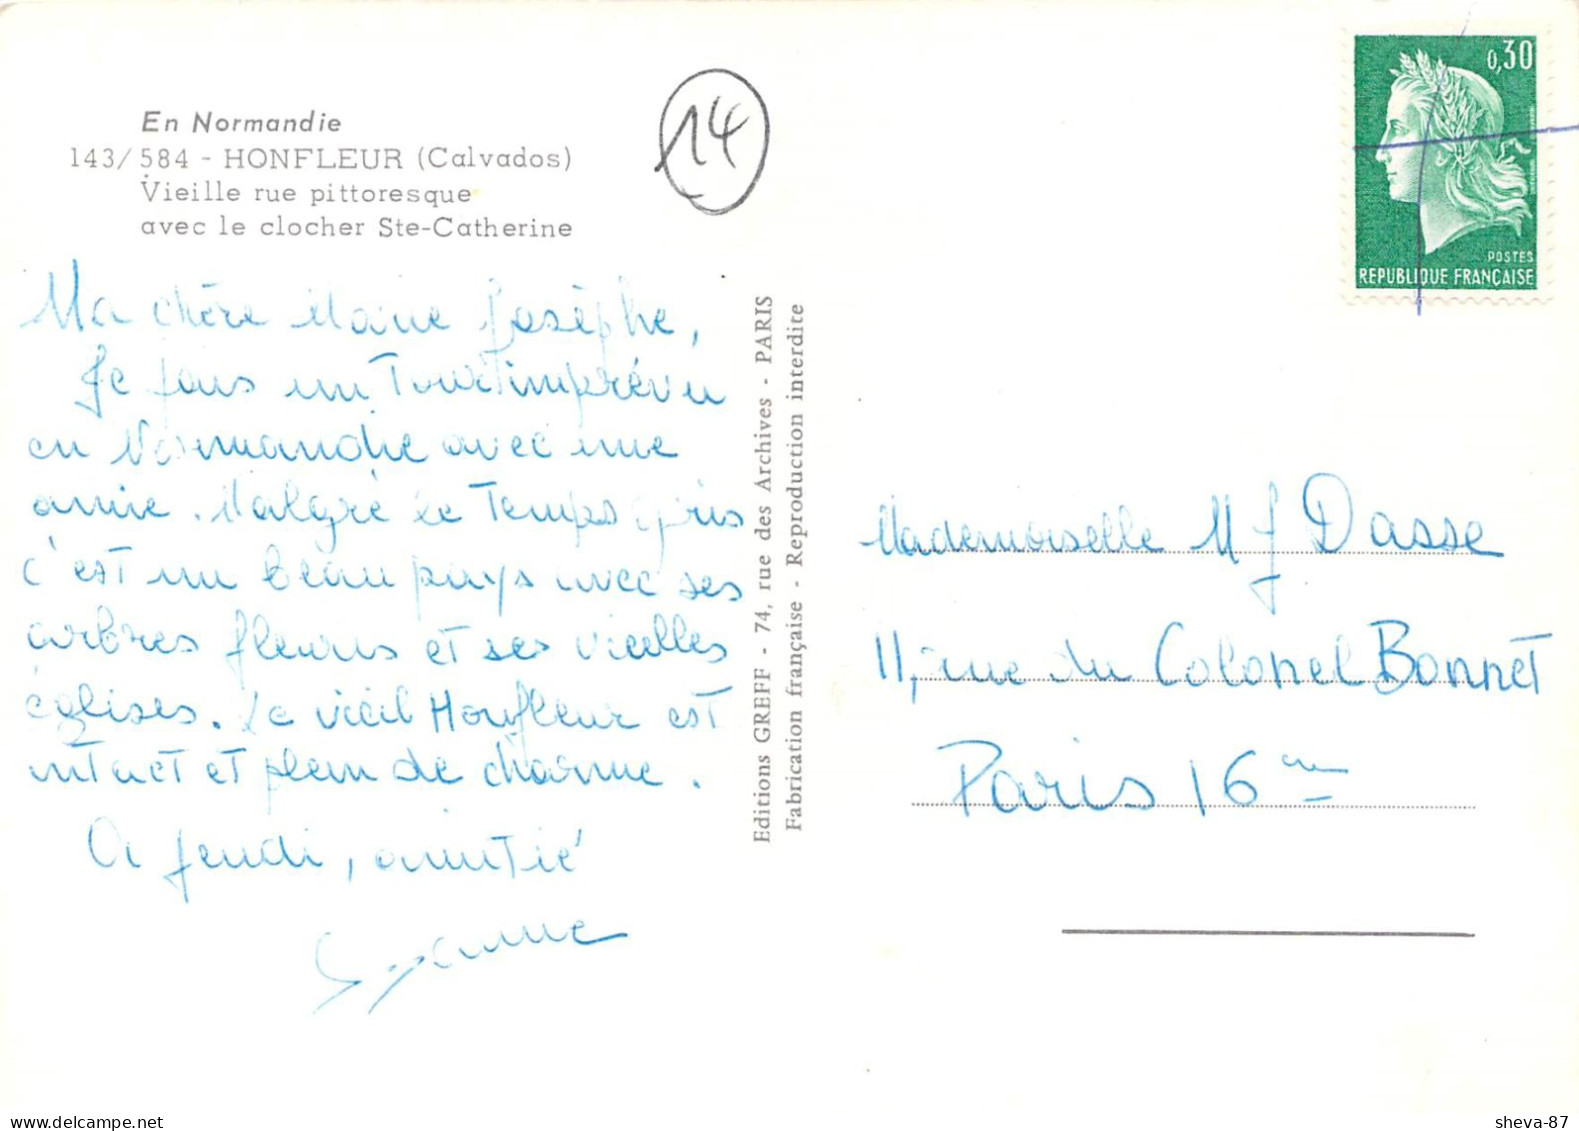 En Normandie
143/584 - HONFLEUR (Calvados)
Vieille rue pittoresque
avec le clocher Ste-Catherine
14
Ma chère Marie Josèphe,
Je fais un Tour imprévu
en Normandie avec une
amie. Malgré le Temps gris
c'est un beau pays avec ses
arbres fleuris et ses vieilles
églises. Le vieil Honfleur est
intact et plein de charme.
A jeudi, amitié
Suzanne
Editions GREFF - 74, rue des Archives - PARIS
Fabrication française - Reproduction interdite
0,30
POSTES
REPUBLIQUE FRANÇAISE
Mademoiselle M J Dasse
11, rue du Colonel Bonnet
Paris 16em
sheva-87